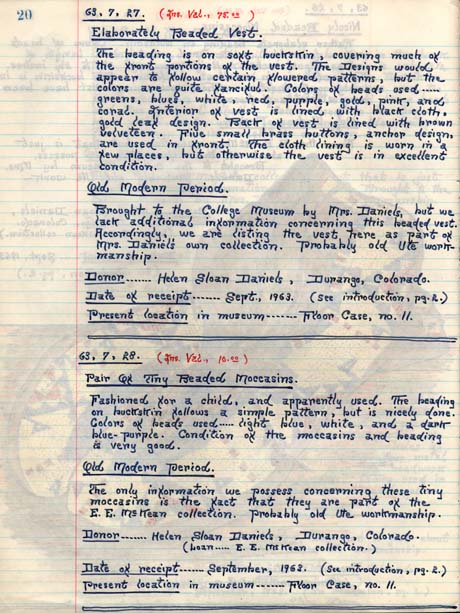 20
63, 7, 27. (Ins. Val., 75.00)
Elaborately Beaded Vest.
The beading is on soft buckskin, covering much of
the front portions of the vest. The Designs would
appear to follow certain flowered patterns, but the
colors are quite fanciful. Colors of beads used.....
greens, blues, white, red, purple, gold, pink, and
coral. Interior of vest is lined with black cloth,
gold leaf design. Back of vest is lined with brown
velveteen. Five small brass buttons, anchor design,
are used in front. The cloth lining is worn in a
few places, but otherwise the vest is in excellent
condition.
Old Modern Period.
Brought to the College Museum by Mrs. Daniels, but we
lack additional information concerning this beaded vest.
Accordingly, we are listing the vest here as part of
Mrs. Daniels own collection. Probably old Ute work-
manship.
Donor....... Helen Sloan Daniels, Durango, Colorado.
Date of receipt....... Sept., 1963. (See introduction, pg. 2.)
Present location in museum....... Floor Case, no. 11.
63, 7, 28. (Ins. Val., 10.00)
Pair Of Tiny Beaded Moccasins.
Fashioned for a child, and apparently used. The beading
on buckskin follows a simple pattern, but is nicely done.
Colors of beads used..... light blue, white, and a dark
blue-purple. Condition of the moccasins and beading
is very good.
Old Modern Period.
The only information we possess concerning these tiny
moccasins is the fact that they are part of the
E. E. McKean collection. Probably old Ute workmanship.
Donor....... Helen Sloan Daniels, Durango, Colorado.
(Loan.... E. E. McKean collection.)
Date of receipt....... September, 1963. (See introduction, pg. 2.)
Present location in museum....... Floor Case, no. 11.